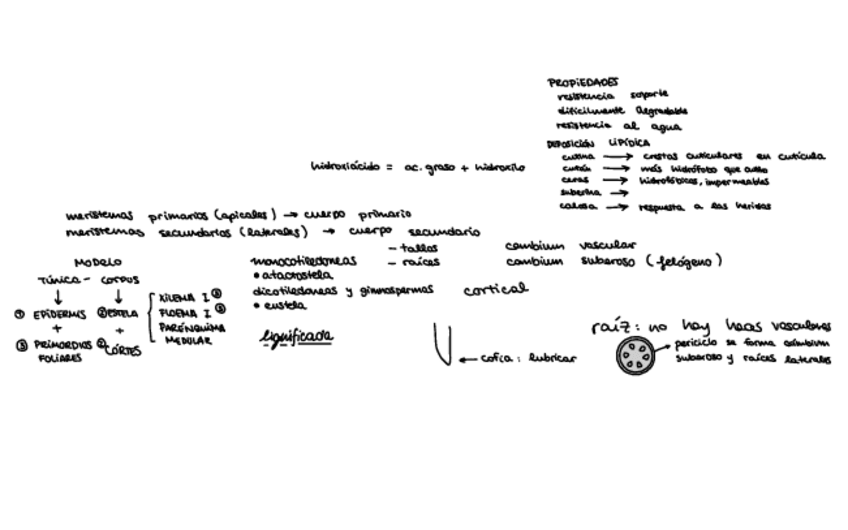 PROPIEDADES
resistencia soporte
dificilmente degradable
resistencia al agua
DEPOSICIÓN LIPÍDICA
cutina → crestas cuticulares en cutícula
cután → más hidrófobo que
ceras → hidrofóbicas, impermeables
suberina →
calosa → respuesta a las heridas
hidroxiácido = ac. graso + hidroxilo
meristemas primarios (apicales) → cuerpo primario
meristemas secundarios (laterales) → cuerpo secundario
- tallos
- raíces
cambium vascular
cambium suberoso (felógeno)
monocotiledoneas
• atactostela
dicotiledoneas y gimnospermas
• eustela
cortical
lignificada
MODELO
TÚNICA - CORPUS
↓ ↓
① EPIDERMIS ② ESTELA
+ +
③ PRIMORDIOS ② CÓRTES
FOLIARES
XILEMA I ③
FLOEMA I ③
PARÉNQUIMA
MEDULAR
← cofia: lubricar
raíz: no hay haces vasculares
periciclo se forma cámbium
suberoso y raíces laterales